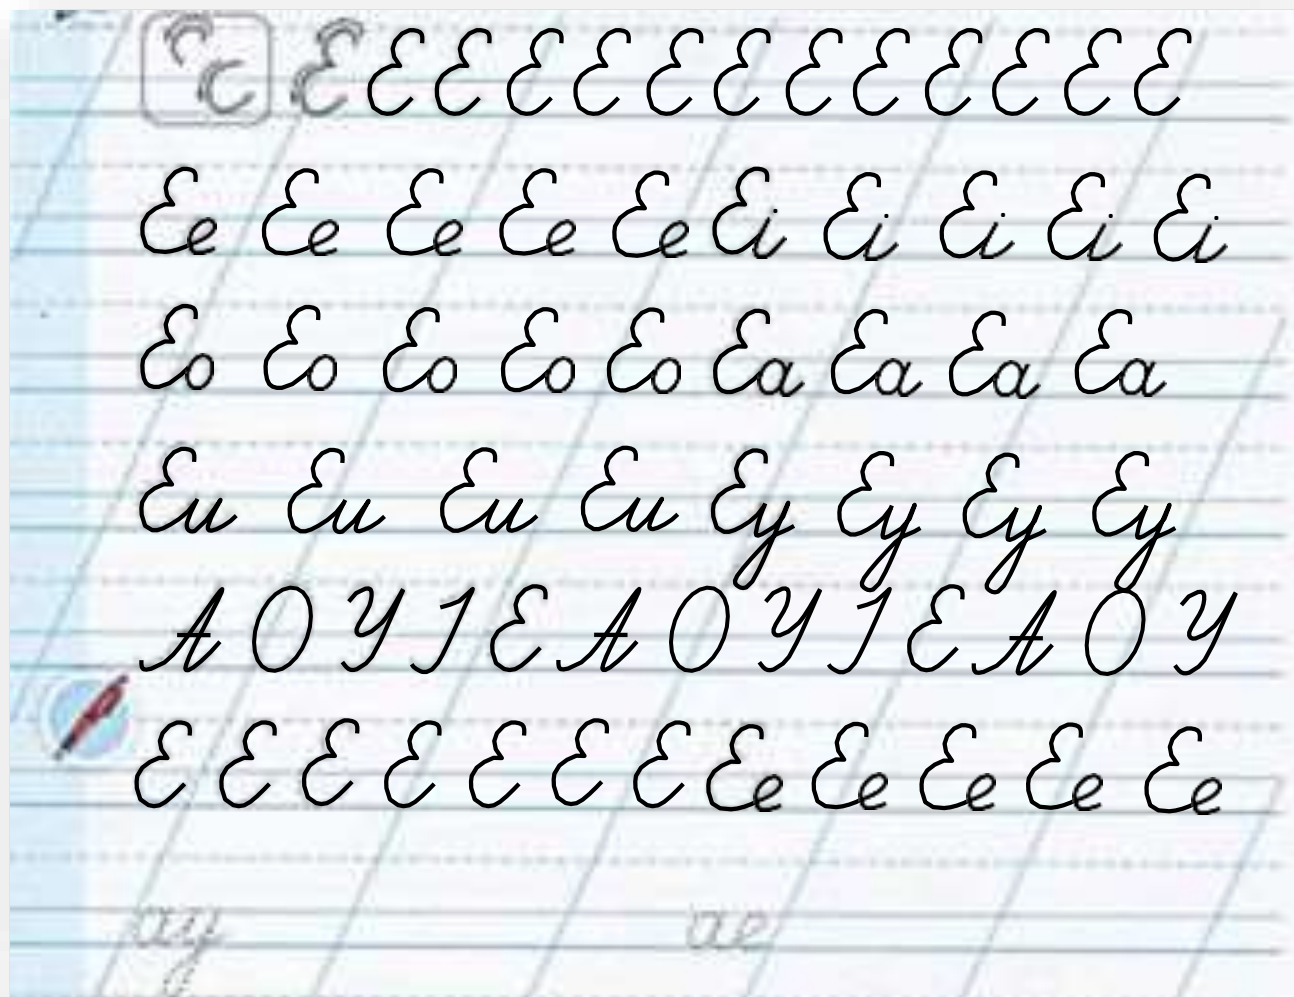 Е Е Е Е Е Е Е Е Е Е Е Е Е
Ее Ее Ее Ее Ее Еі Еі Еі Еі Еі
Ео Ео Ео Ео Ео Еа Еа Еа Еа
Еи Еи Еи Еи Еу Еу Еу Еу
А О У І Е А О У І Е А О У
Е Е Е Е Е Е Е Ее Ее Ее Ее Ее
ау ае